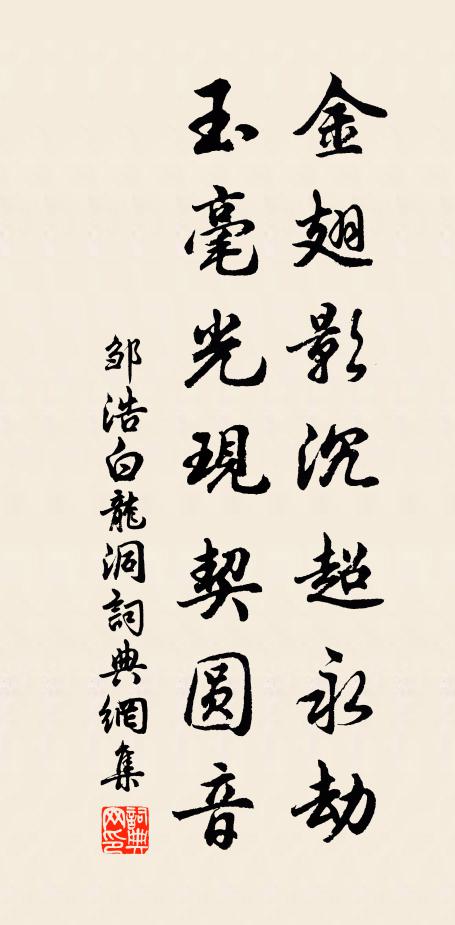 金翅影沉超永劫
玉毫光現契圓音
邹浩白龍洞詞典網集
詞典网印